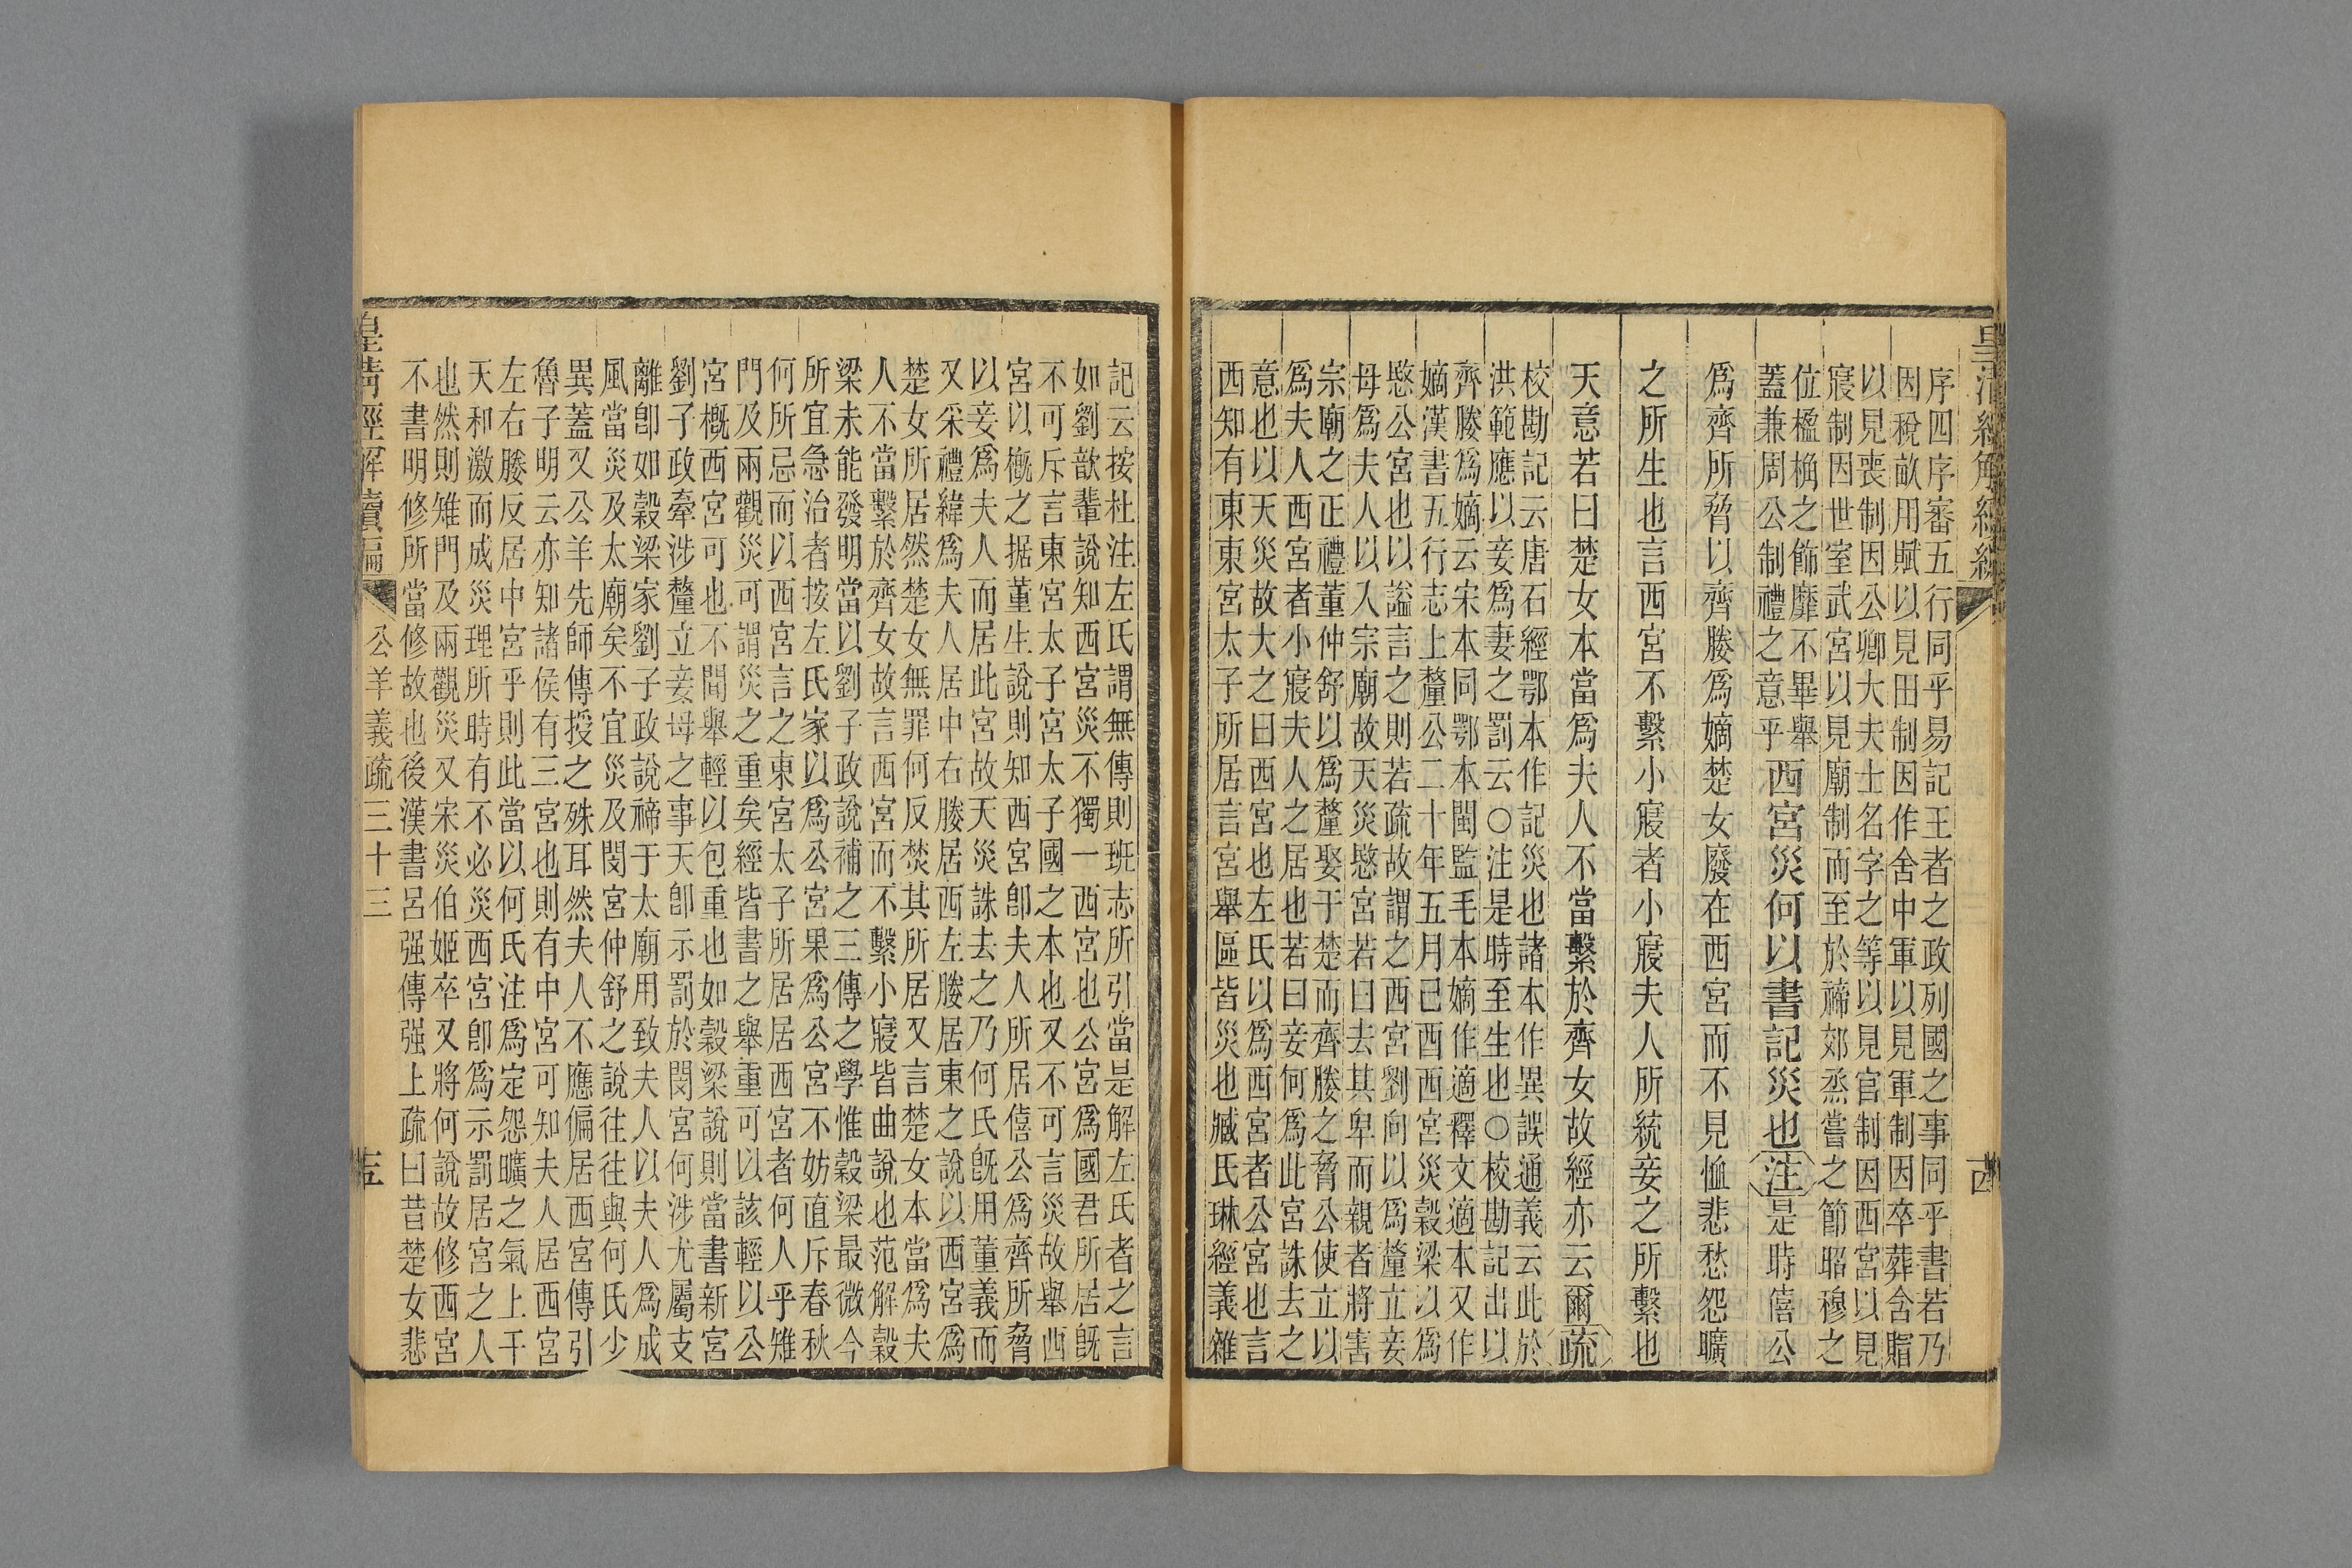 皇清經解續編
序四序審五行同乎易記王者之政列國之事同乎書若乃
因稅畝用賦以見田制因作舍中軍以見軍制因卒葬含賵
以見喪制因公卿大夫士名字之等以見官制因西宮以見
寢制因世室武宮以見廟制而至於禘郊烝嘗之節昭穆之
位楹桷之飾靡不畢舉
蓋兼周公制禮之意乎
西宮災何以書記災也注是時僖公
爲齊所脅以齊媵爲嫡楚女廢在西宮而不見恤悲愁怨曠
之所生也言西宮不繫小寢者小寢夫人所統妾之所繫也
天意若曰楚女本當爲夫人不當繫於齊女故經亦云爾疏
校勘記云唐石經鄂本作記災也諸本作異誤通義云此於
洪範應以妾爲妻之罰云○注是時至生也○校勘記出以
齊媵爲嫡云宋本同鄂本閩監毛本嫡作適釋文適本又作
嫡漢書五行志上釐公二十年五月己酉西宮災穀梁以爲
愍公宮也以謚言之則若疏故謂之西宮劉向以爲釐立妾
母爲夫人以入宗廟故天災愍宮若曰去其卑而親者將害
宗廟之正禮董仲舒以爲釐娶于楚而齊媵之脅公使立以
爲夫人西宮者小寢夫人之居也若曰妾何爲此宮誅去之
意也以天災故大之曰西宮也左氏以爲西宮者公宮也言
西知有東東宮太子所居言宮舉區皆災也臧氏琳經義雜
記云按杜注左氏謂無傳則班志所引當是解左氏者之言
如劉歆輩說知西宮災不獨一西宮也公宮爲國君所居旣
不可斥言東宮太子宮太子國之本也又不可言災故舉西
宮以槪之据董生說則知西宮卽夫人所居僖公爲齊所脅
以妾爲夫人而居此宮故天災誅去之乃何氏旣用董義而
又采禮緯爲夫人居中右媵居西左媵居東之說以西宮爲
楚女所居然楚女無罪何反焚其所居又言楚女本當爲夫
人不當繫於齊女故言西宮而不繫小寢皆曲說也范解穀
梁未能發明當以劉子政說補之三傳之學惟穀梁最微今
所宜急治者按左氏家以爲公宮果爲公宮不妨直斥春秋
何所忌而以西宮言之東宮太子所居居西宮者何人乎雉
門及兩觀災可謂災之重矣經皆書之舉重可以該輕以公
宮槪西宮可也不聞舉輕以包重也如穀梁說則當書新宮
劉子政牽涉釐立妾母之事天卽示罰於閔宮何涉尤屬支
離卽如穀梁家劉子政說禘于太廟用致夫人以夫人爲成
風當災及太廟矣不宜災及閔宮仲舒之說往往與何氏少
異蓋又公羊先師傳授之殊耳然夫人不應偏居西宮傳引
魯子明云亦知諸侯有三宮也則有中宮可知夫人居西宮
左右媵反居中宮乎則此當以何氏注爲定怨曠之氣上干
天和激而成災理所時有不必災西宮卽爲示罰居宮之人
也然則雉門及兩觀災又宋災伯姬卒又將何說故修西宮
不書明修所當修故也後漢書呂强傳强上疏曰昔楚女悲
皇清經解續編
公羊義疏三十三